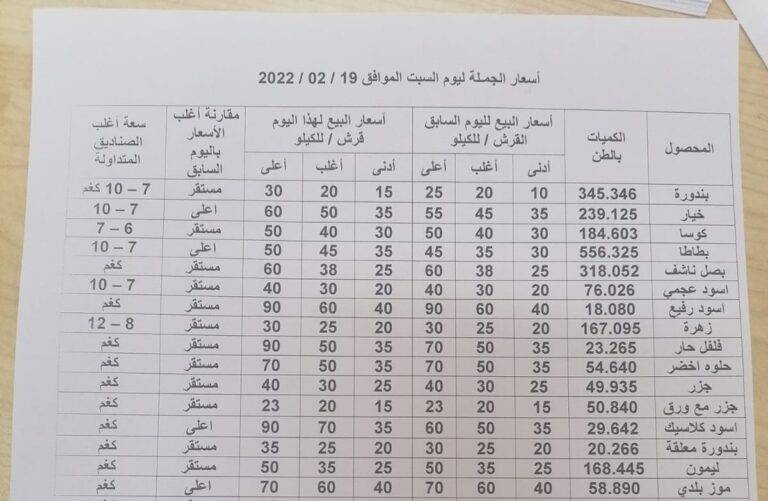 أسعار الجملة ليوم السبت الموافق 19 / 02 / 2022
المحصول الكميات بالطن أسعار البيع لليوم السابق القرش / للكيلو أسعار البيع لهذا اليوم قرش / للكيلو مقارنة أغلب الأسعار باليوم السابق سعة أغلب الصناديق المتداولة
أدنى أغلب أعلى أدنى أغلب أعلى
بندورة 345.346 10 20 25 15 20 30 مستقر 7 – 10 كغم
خيار 239.125 35 45 55 35 50 60 اعلى 7 – 10
كوسا 184.603 30 40 50 30 40 50 مستقر 6 – 7
بطاطا 556.325 30 35 45 35 45 50 اعلى 7 – 10
بصل ناشف 318.052 25 38 60 25 38 60 مستقر كغم
اسود عجمي 76.026 20 30 40 20 30 40 مستقر 7 – 10
اسود رفيع 18.080 40 60 90 40 60 90 مستقر كغم
زهرة 167.095 20 25 30 20 25 30 مستقر 8 – 12
فلفل حار 23.265 35 50 70 35 50 90 مستقر كغم
حلوه اخضر 54.640 35 50 70 35 50 70 مستقر كغم
جزر 49.935 25 30 40 25 30 40 مستقر كغم
جزر مع ورق 50.840 15 20 23 15 20 23 مستقر كغم
اسود كلاسيك 29.642 35 50 60 35 70 90 اعلى كغم
بندورة معلقة 20.266 20 25 30 20 25 35 مستقر كغم
ليمون 168.445 25 35 50 25 35 50 مستقر كغم
موز بلدي 58.890 40 60 70 40 60 70 اعلى كغم